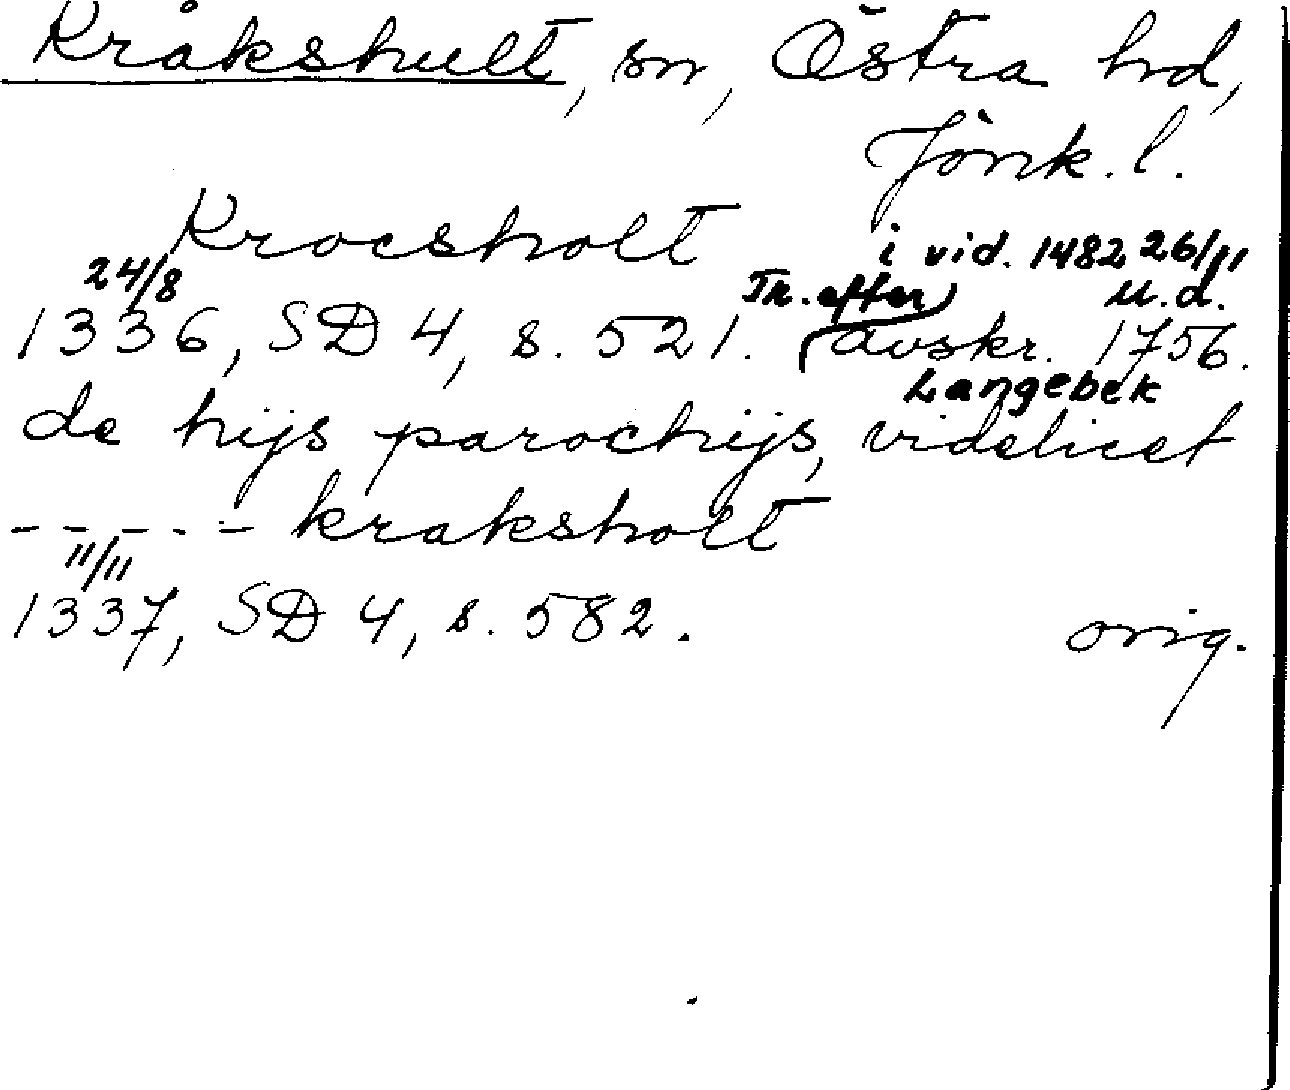 Kråkshult, sn, Östra hd,
Jönk. l.
Krocsholt
i vid. 1482 26/11
24/8
Tr. efter u. d.
1336, SD 4, s. 521. avskr. 1756.
Langebek
de hijs parochijs, videlicet
- - - - - kraksholt
11/11
1337, SD 4, s. 582. orig.